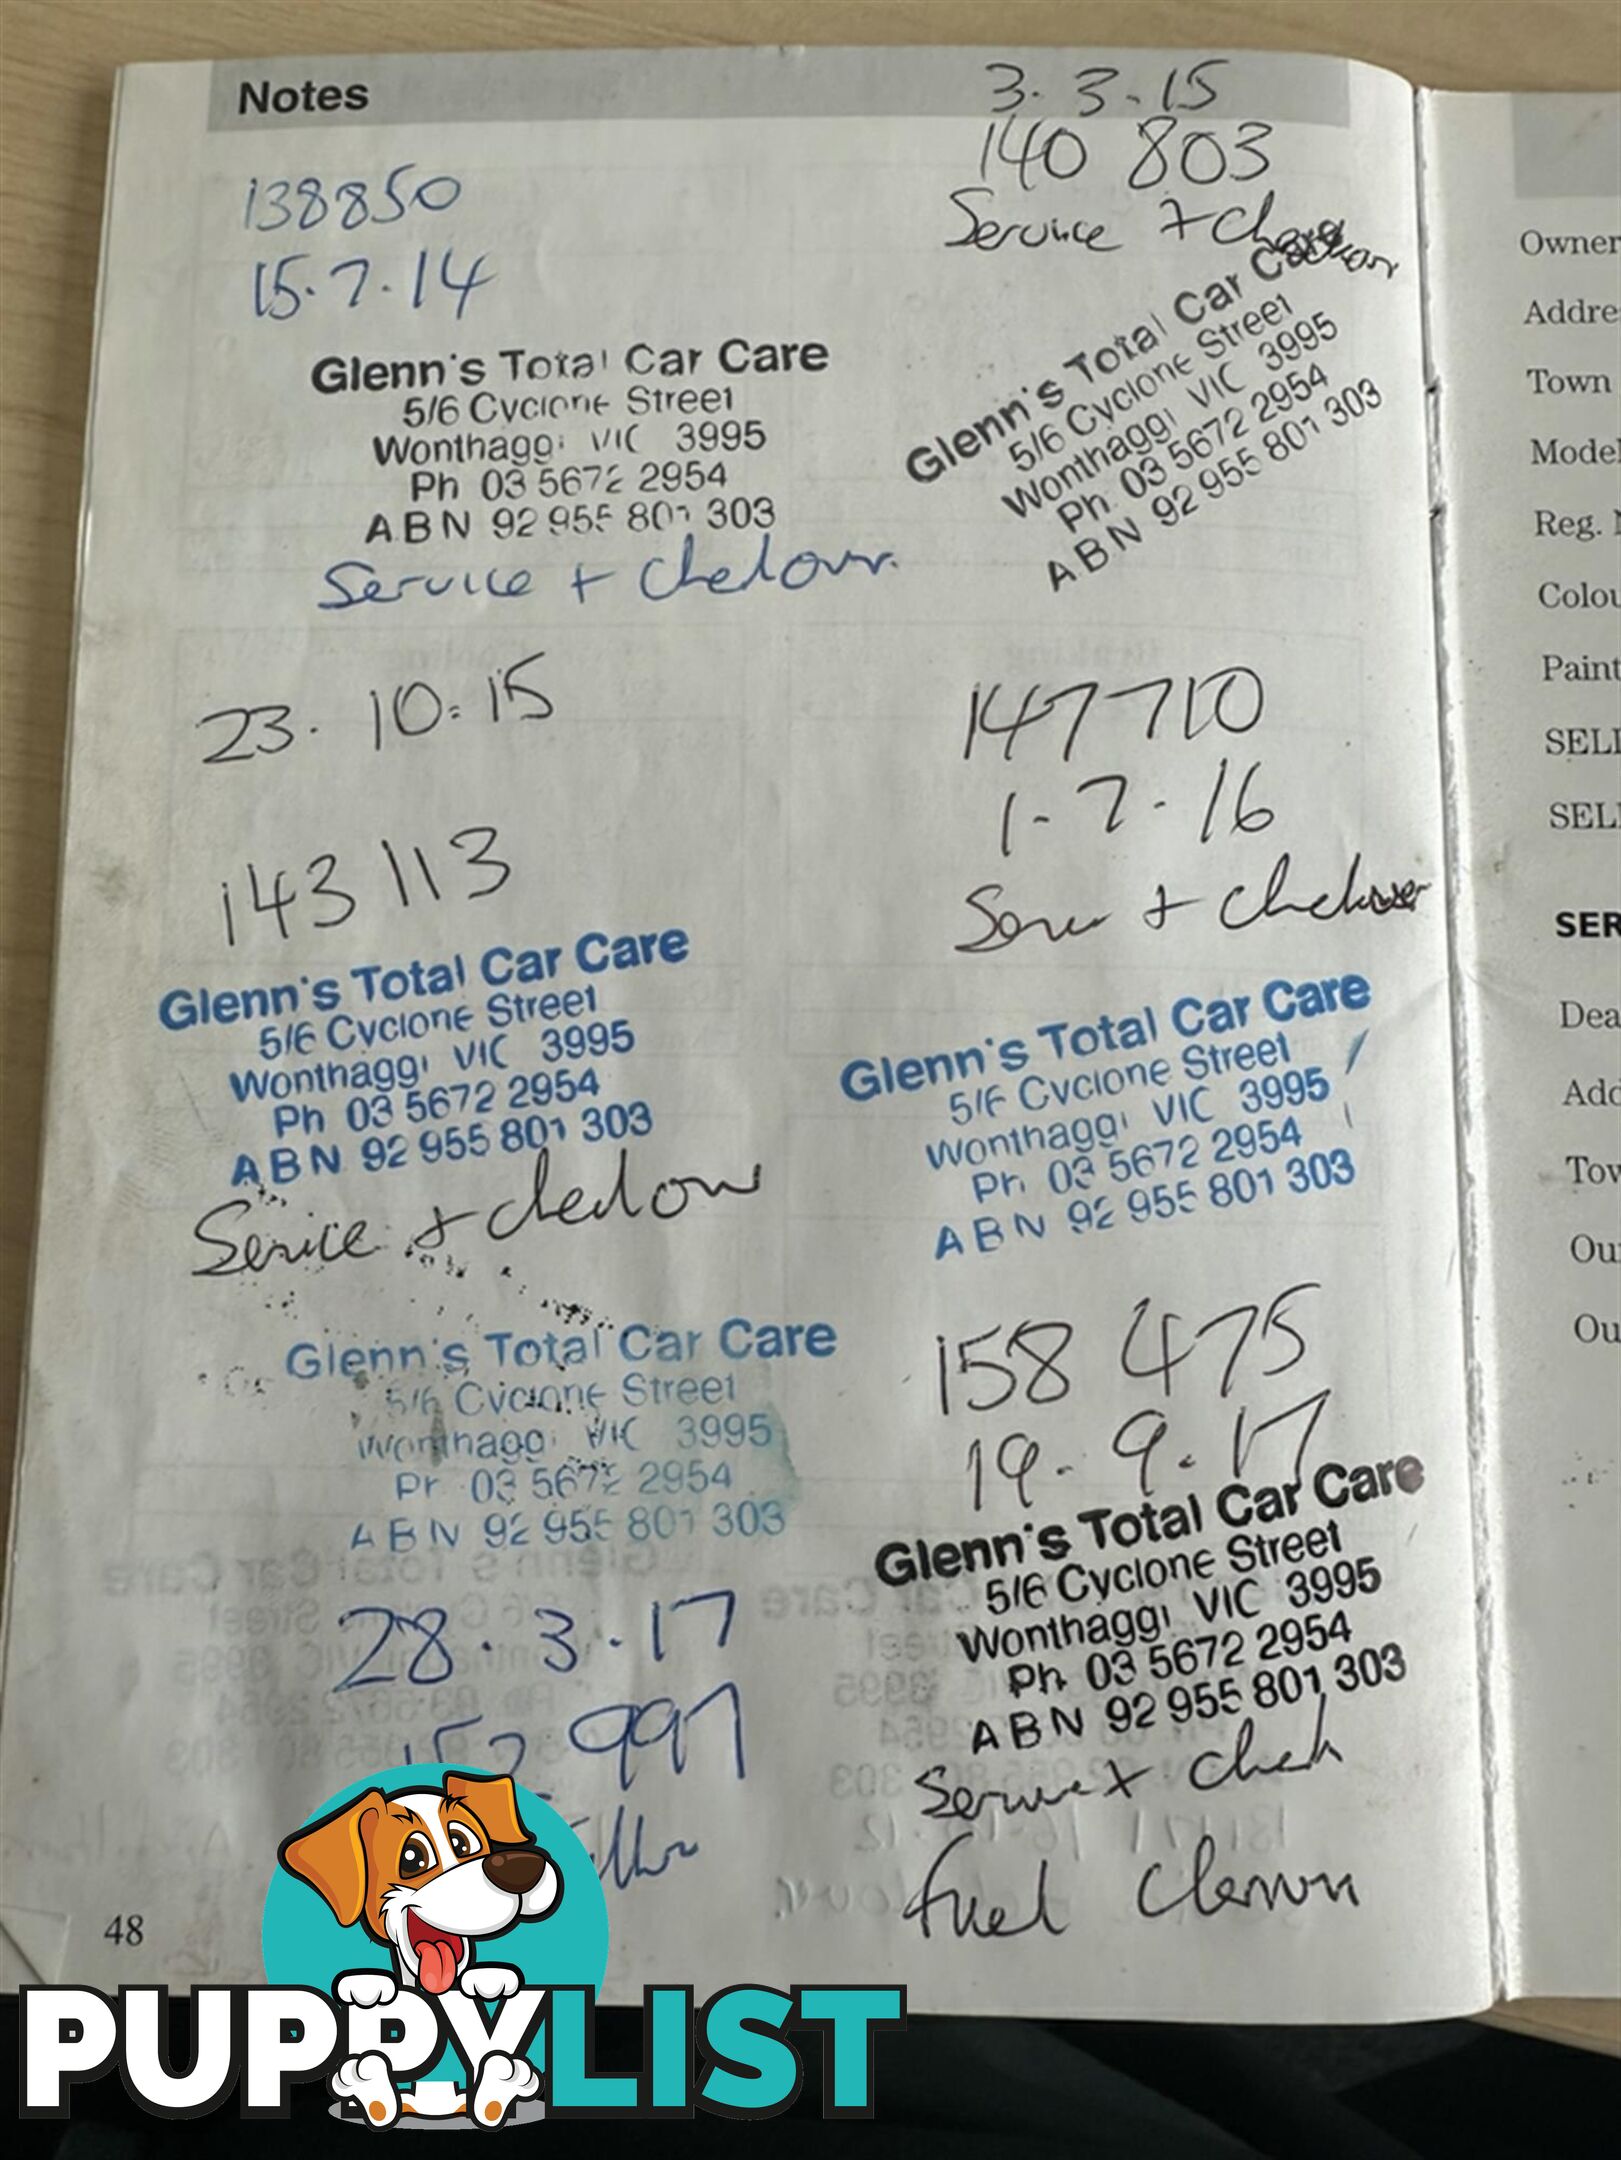 Notes
138850
15.7.14
Glenn's Total Car Care
5/6 Cyclone Street
Wonthaggi VIC 3995
Ph 03 5672 2954
A B N 92 955 801 303
Service + Checkover.
3.3.15
140 803
Service +
Glenn's Total Car Care
5/6 Cyclone Street
Wonthaggi VIC 3995
Ph 03 5672 2954
A B N 92 955 801 303
23.10.15
143 113
Glenn's Total Car Care
5/6 Cyclone Street
Wonthaggi VIC 3995
Ph 03 5672 2954
A B N 92 955 801 303
Service + checkover
147710
1-7-16
Service + checkover
Glenn's Total Car Care
5/6 Cyclone Street
Wonthaggi VIC 3995
Ph 03 5672 2954
A B N 92 955 801 303
Glenn's Total Car Care
5/6 Cyclone Street
Wonthaggi VIC 3995
Ph 03 5672 2954
A B N 92 955 801 303
28.3.17
997
158 475
19.9.17
Glenn's Total Car Care
5/6 Cyclone Street
Wonthaggi VIC 3995
Ph 03 5672 2954
A B N 92 955 801 303
Service + check
fuel
48
Owner
Addre
Town
Model
Reg.
Colou
Paint
SELL
SELL
SER
Dea
Add
Tow
Ou
Ou
PUPPYLIST